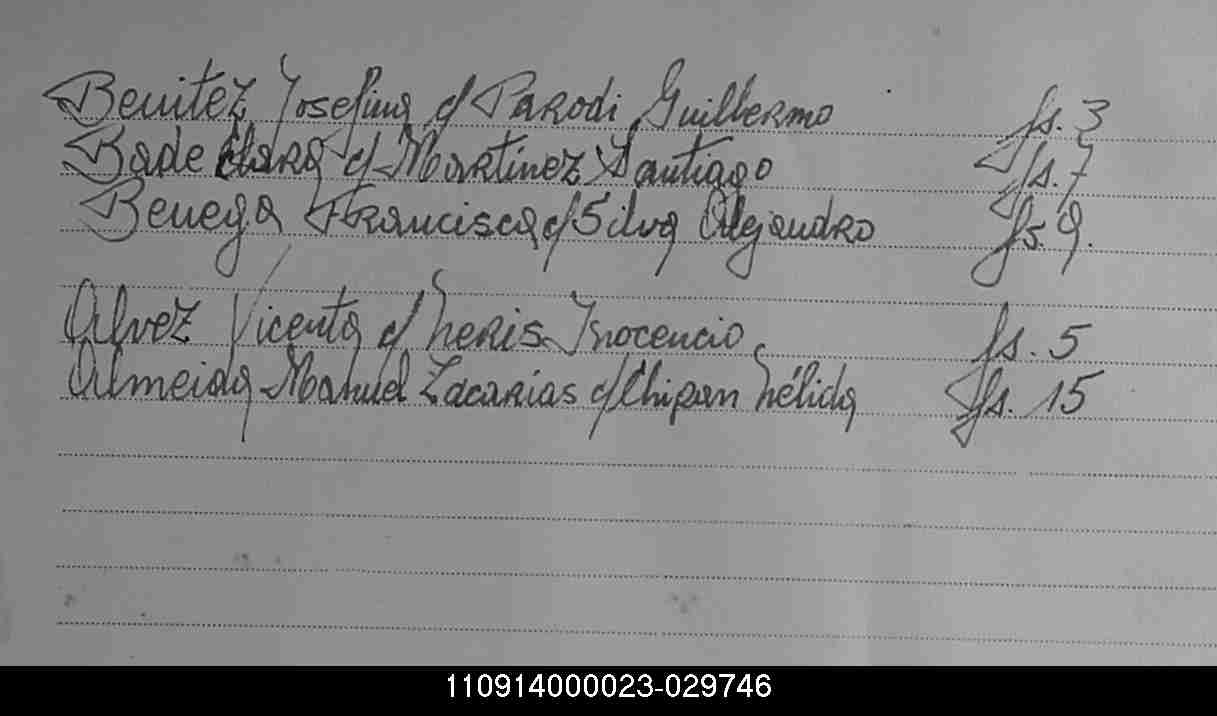 Benitez Josefina c/ Parodi Guillermo fs. 3
Bade Clara c/ Martinez Santiago fs. 7
Benega Francisca c/ Silva Alejandro fs. 9.
Alvez Vicenta c/ Neris Inocencio. fs. 5
Almeida Manuel Zacarias c/ Chipan Nélida fs. 15
110914000023-029746